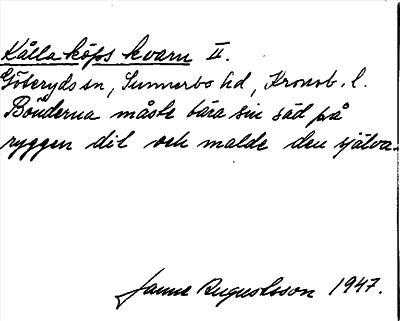 Kålla köps kvarn II.
Göteryds sn, Sunnerbo hd, Kronob. l.
Bönderna måste bära sin säd på
ryggen dit och malde den själva.
Janne Augustsson 1947.